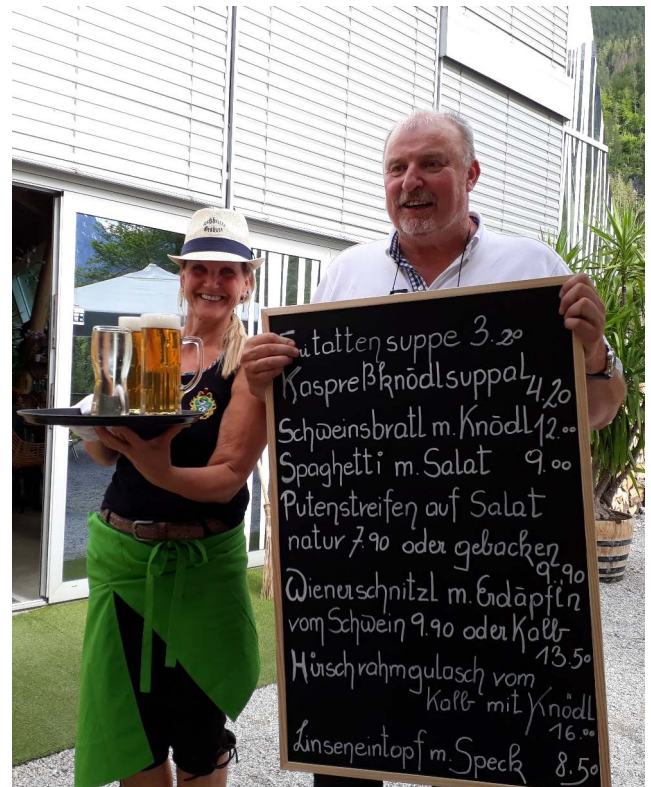 suppe 3.20
Kaspreßknödlsuppal 4.20
Schweinsbratl m. Knödl 12.00
Spaghetti m. Salat 9.00
Putenstreifen auf Salat
natur 7.90 oder gebacken
9.90
Wienerschnitzl m. Erdäpfln
vom Schwein 9.90 oder Kalb
13.50
Hirschrahmgulasch vom
Kalb mit Knödl
16.00
Linseneintopf m. Speck 8.50